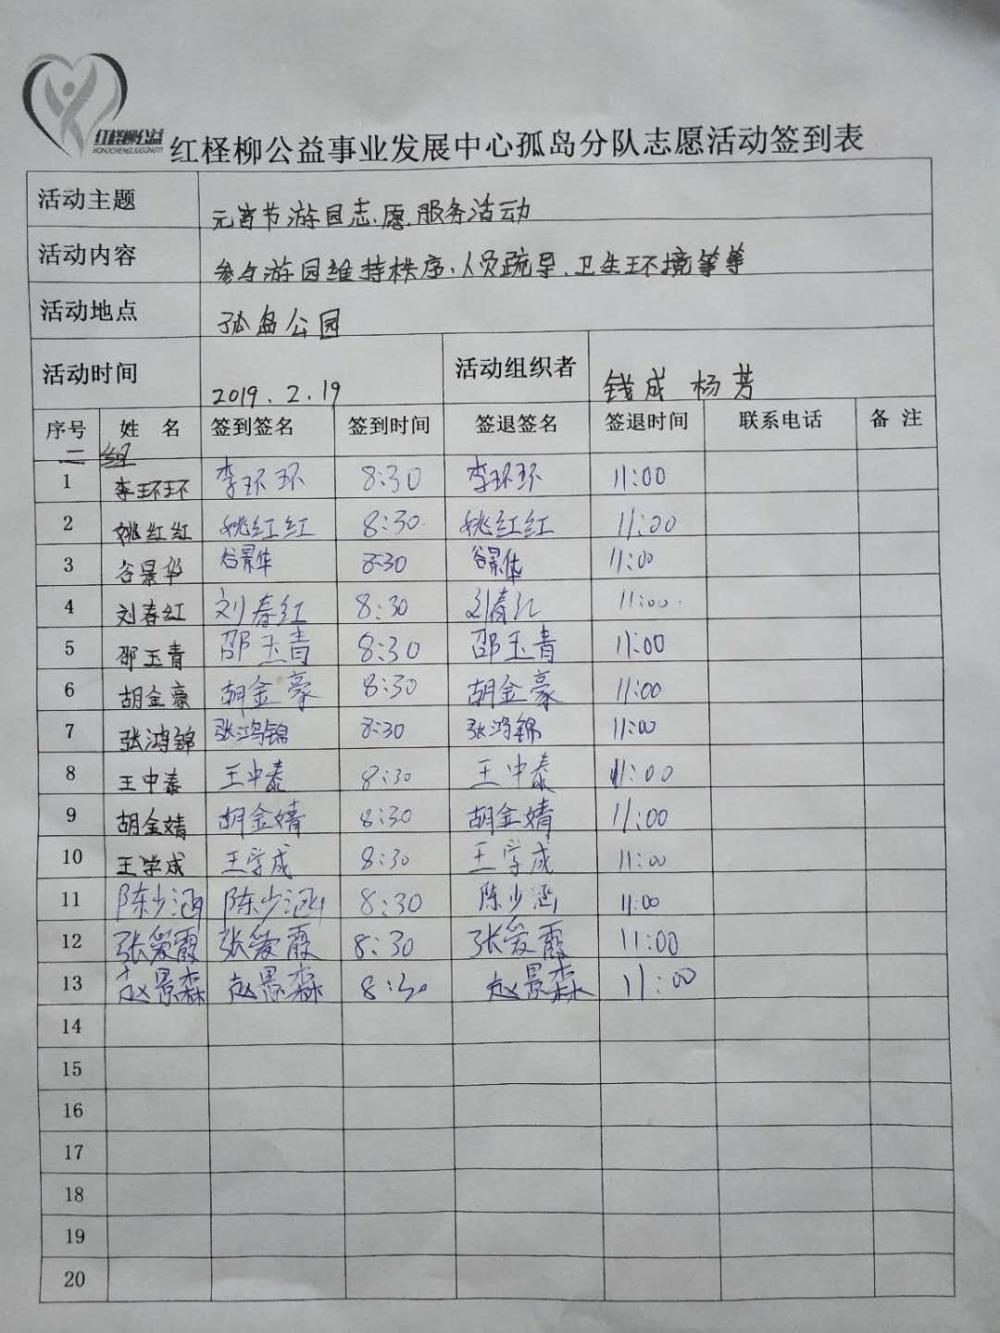 红柽柳公益
HONGCHENGLIUGONGYI
红柽柳公益事业发展中心孤岛分队志愿活动签到表
活动主题 元宵节游园志愿服务活动
活动内容 参与游园维持秩序、人员疏导、卫生环境等等
活动地点 孤岛公园
活动时间 2019.2.19 活动组织者 钱成 杨芳
序号 姓名 签到签名 签到时间 签退签名 签退时间 联系电话 备注
二组
1 李环环 李环环 8:30 李环环 11:00
2 姚红红 姚红红 8:30 姚红红 11:00
3 谷景华 谷景华 8:30 谷景华 11:00
4 刘春红 刘春红 8:30 刘春红 11:00
5 邵玉青 邵玉青 8:30 邵玉青 11:00
6 胡金豪 胡金豪 8:30 胡金豪 11:00
7 张鸿锦 张鸿锦 8:30 张鸿锦 11:00
8 王中泰 王中泰 8:30 王中泰 11:00
9 胡金婧 胡金婧 8:30 胡金婧 11:00
10 王学成 王学成 8:30 王学成 11:00
11 陈少涵 陈少涵 8:30 陈少涵 11:00
12 张爱霞 张爱霞 8:30 张爱霞 11:00
13 赵景森 赵景森 8:30 赵景森 11:00
14
15
16
17
18
19
20